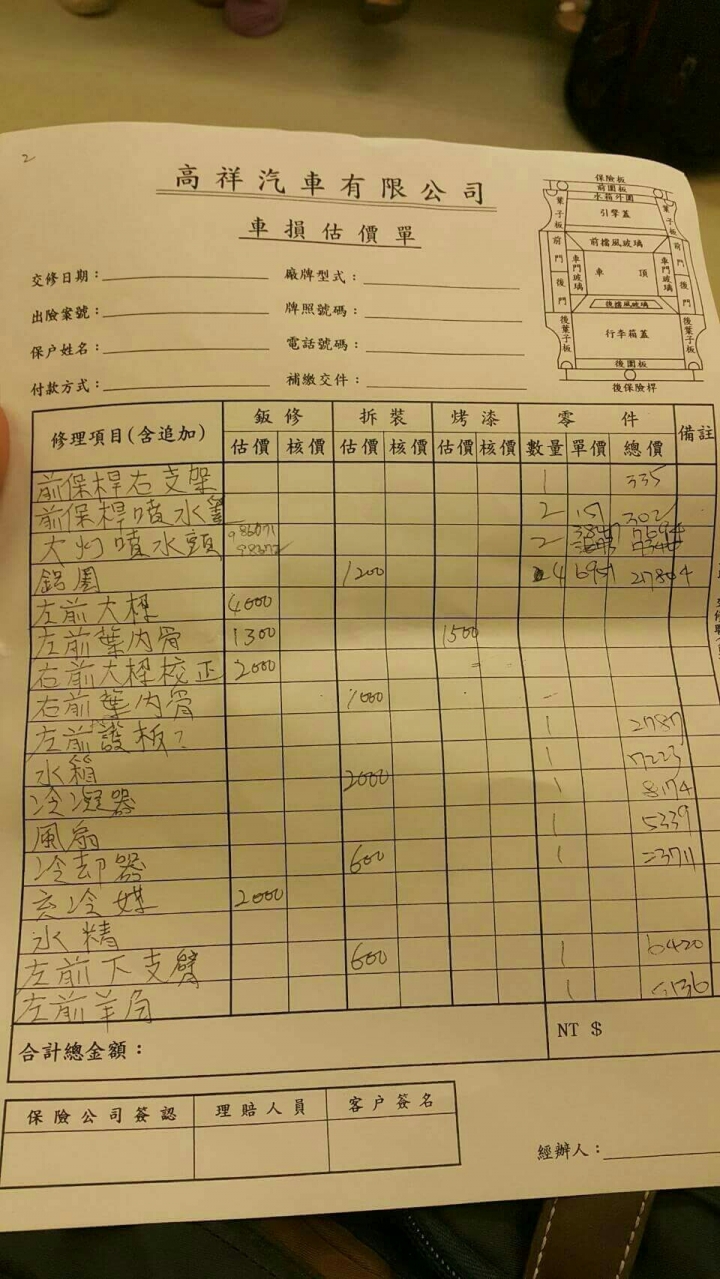 2
高祥汽車有限公司
車損估價單
交修日期： 廠牌型式：
出險案號： 牌照號碼：
保户姓名： 電話號碼：
付款方式： 補繳交件：
保險板
前圍板
水箱外圍
葉子板 引擎蓋 葉子板
前門 前擋風玻璃 前門
車門玻璃 車頂 車門玻璃
後門 後擋風玻璃 後門
後葉子板 行李箱蓋 後葉子板
後圍板
後保險桿
修理項目(含追加) 鈑修 拆裝 烤漆 零件 備註
估價 核價 估價 核價 估價 核價 數量 單價 總價
前保桿右支架 1 335
前保桿噴水蓋 2 151 302
大灯噴水頭 2
鋁圈 1200 4 6951 27804
左前大樑 4000
左前葉內骨 1300 1500
右前大樑校正 2000
右前葉內骨 1000
左前護板? 1 2787
水箱 1 7223
冷凝器 2000 1 8174
風扇 1 5339
冷却器 600 1
充冷媒 2000
水精
左前下支臂 600 1 6420
左前羊角 1
合計總金額： NT $
保險公司簽認 理賠人員 客户簽名
經辦人：